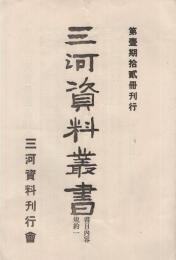 第壹期拾貳冊刊行
三河資料叢書
書目内容
規約一
三河資料刊行會